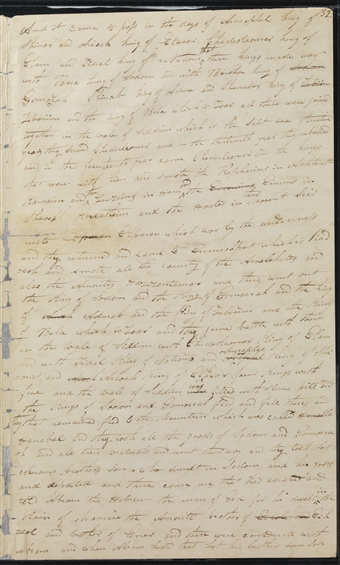 51
And it came to pass in the days of Amraphel king of
Shinar and Arioch king of Elasar Chedorlaomer king of
Elam and Tidal king of nations that these kings made war
with Bera king of Sodom and with Birsha king of
Gomorrah Shinab king of Admah and Shemeber king of
Zeboiim and the king of Bela which is Zoar all these were joined
together in the vale of Siddim which is the salt sea twelve
years they served Chedorlaomer and in the thirteenth year they rebeled
and in the fourteenth year came Chedorlaomer and the kings
that were with him and smote the Rephaims in Ashteroth
Karnaim and the Zuzims in Ham and the Emims in
Shaveh and the Horites in their mount Seir
unto Elparan which was by the wilderness
and they returned and came to Enmishpat which is
and smote all the country of the Amalekites and
also the Amorites and there went out
the King of Sodom and the King of Gomorrah and the King
of Admah and the King of Zeboiim and the King
of Bela which is Zoar and they joined battle with them
in the vale of Siddim with Chedorlaomer King of Elam
and with Tidal King of Nations and Amraphel king of Shi
nar and Arioch King of four Kings with
five and the vale of Siddim was filled with slime pitts and
the Kings of Sodom and Gomorrah fled and fell there and
they that remained fled to the Mountain which was called
Hanabal and they took all the goods of Sodom and Gomorra
h and all their victuals and went their way and they took Lot
Abrams brothers son who dwelt in Sodom and his goods
and departed and there came one that had escaped and
told Abram the Hebrew the man of God for he dwelt in the
plain of Mamre the Amorite brother of Esh
col and brother of Aner and these were confederate with
Abram and when Abram heard that Lot his brothers son